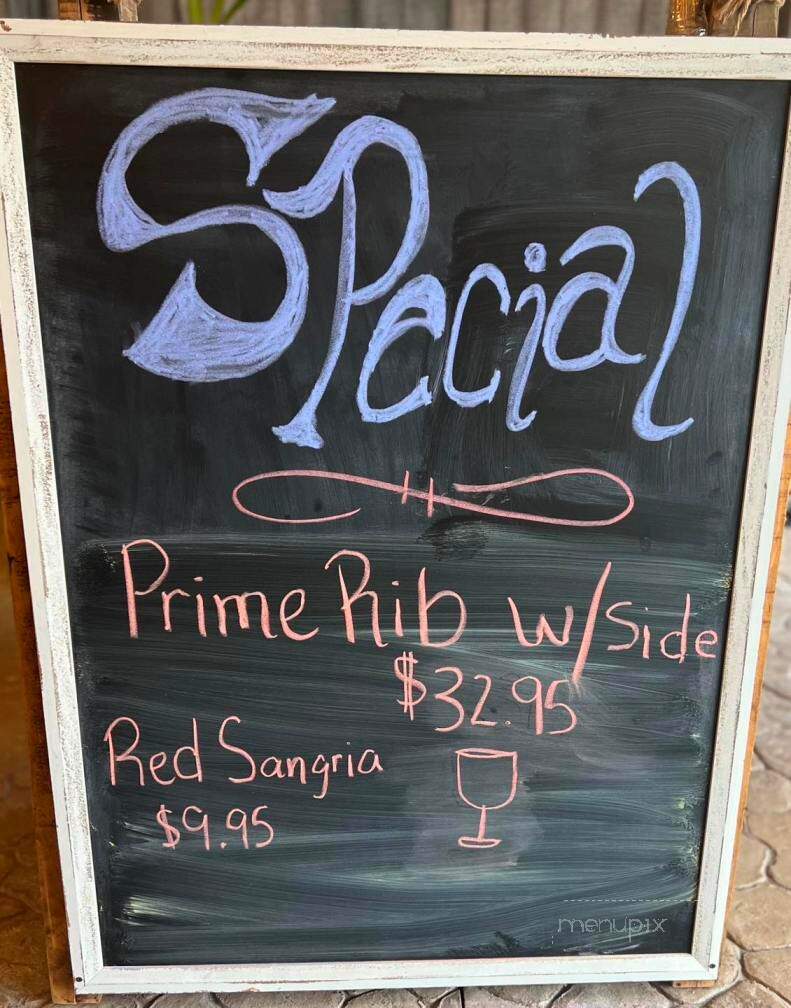 SPecial
Prime Rib w/side
$32.95
Red Sangria
$9.95
menupix